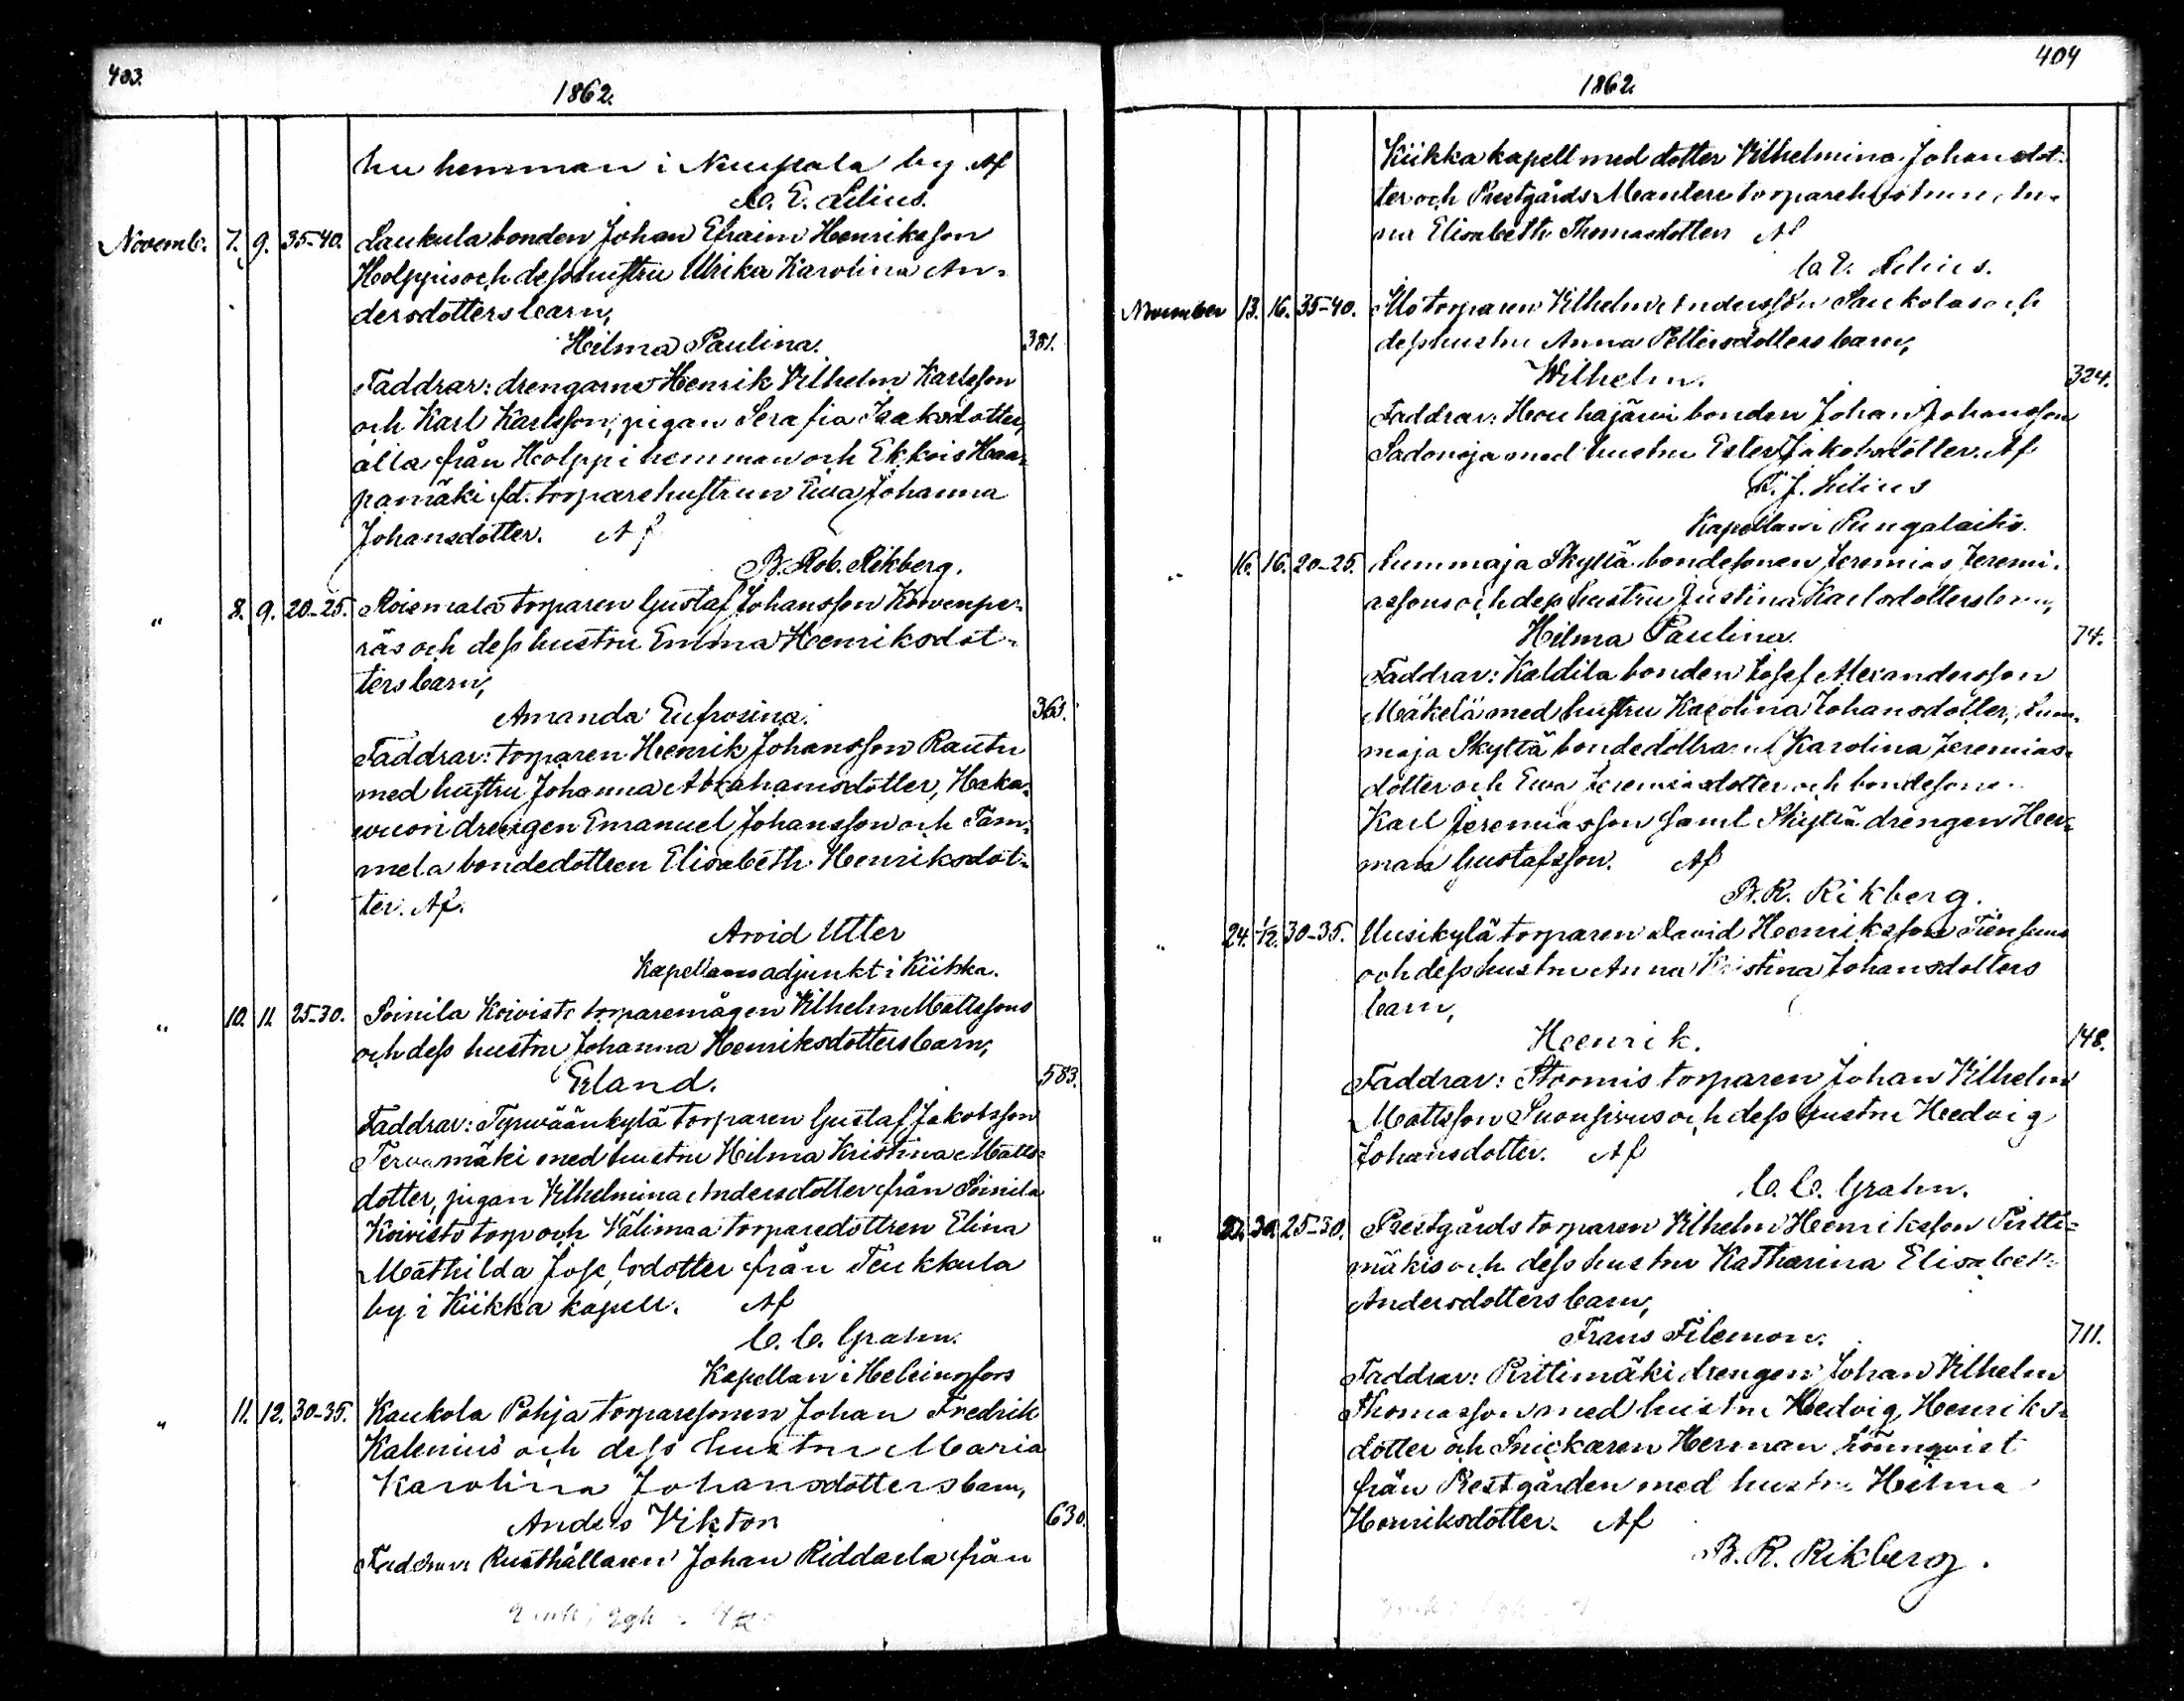 403.
1862.
hu hemman i Nuupala by. Af
C. E. Lilius.
Novemb. 7. 9. 35-40. Laukula bonden Johan Efraim Henriksson
Holppis och dess hustru Ulrika Karolina An-
dersdotters barn,
Hilma Paulina. 381.
Faddrar: drengarne Henrik Vilhelm Karlsson
och Karl Karlsson, pigan Serafia Isaksdotter,
alla från Holppi hemman och Ekkois Haa-
pamäki fd. torparehustrun Ewa Johanna
Johansdotter. Af
B. Rob. Rikberg.
" 8. 9. 20-25. Roismala torparen Gustaf Johansson Korvenpe-
räs och dess hustru Emma Henriksdot-
ters barn,
Amanda Eufrosina. 363.
Faddrar: torparen Henrik Johansson Rautu
med hustru Johanna Abrahamsdotter, Haka-
wuori drengen Emanuel Johansson och Tam-
mela bondedottren Elisabeth Henriksdot-
ter. Af.
Arvid Utter
Kapellansadjunkt i Kiikka.
" 10. 11. 25-30. Soinila Koivisto torparemågen Vilhelm Mattssons
och dess hustru Johanna Henriksdotters barn,
Erland. 583.
Faddrar: Tyrväänkylä torparen Gustaf Jakobsson
Tervamäki med hustru Hilma Kristina Matts-
dotter, pigan Vilhelmina Andersdotter från Soinila
Koivisto torp och Välimaa torparedottren Elina
Mathilda Josefsdotter från
by i Kiikka kapell. Af
C. C. Grahn.
Kapellan i Helsingfors
" 11. 12. 30-35. Kaukola Pohja torparesonen Johan Fredrik
Kalenius och dess hustru Maria
Karolina Johansdotters barn,
Anders Viktor 630.
Faddrar: Rusthållaren Johan Riddarla från
404
1862
Kiikka kapell med dotter Vilhelmina Johansdot-
ter och Prestgårds Mantere torparehustrun An-
na Elisabeth Thomasdotter Af
C. E. Lilius.
November 13. 16. 35-40. Illo torparen Vilhelm Andersson Kaukolas och
dess hustru Anna Pettersdotters barn,
Wilhelm. 324.
Faddrar: Houhajärvi bonden Johan Johansson
Sadonoja med hustru Ester Jakobsdotter. Af
K. J. Lilius
Kapellan i Pungalaitio.
" 16. 16. 20-25. Lummaja Skyttä bondesonen Jeremias Jeremi-
assons och dess hustru Justina Karlsdotters barn,
Hilma Paulina. 74.
Faddrar: Kaldila bonden Josef Alexandersson
Mäkelä med hustru Karolina Johansdotter, Lum-
maja Skyttä bondedöttrarne Karolina Jeremias-
dotter och Ewa Jeremiasdotter och bondesone.
Karl Jeremiasson samt Skyttä drengen Her-
man Gustafsson. Af
B. R. Rikberg.
" 24. 1/12. 30-35. Uusikylä torparen David Henriksson
och dess hustru Anna Kristina Johansdotters
barn,
Henrik. 148.
Faddrar: Stoomis torparen Johan Vilhelm
Mattsson Suonsivus och dess hustru Hedvig
Johansdotter. Af
C. C. Grahn.
" 22. 30. 25-30. Prestgårds torparen Vilhelm Henriksson Pirtti-
mäkis och dess hustru Katharina Elisabet
Andersdotters barn,
Frans Filemon. 711.
Faddrar: Pirttimäki drengen Johan Vilhelm
Thomasson med hustru Hedvig Henriks-
dotter och Snickaren Herman Lönnqvist
från Prestgården med hustru Hilma
Henriksdotter. Af
B. R. Rikberg.